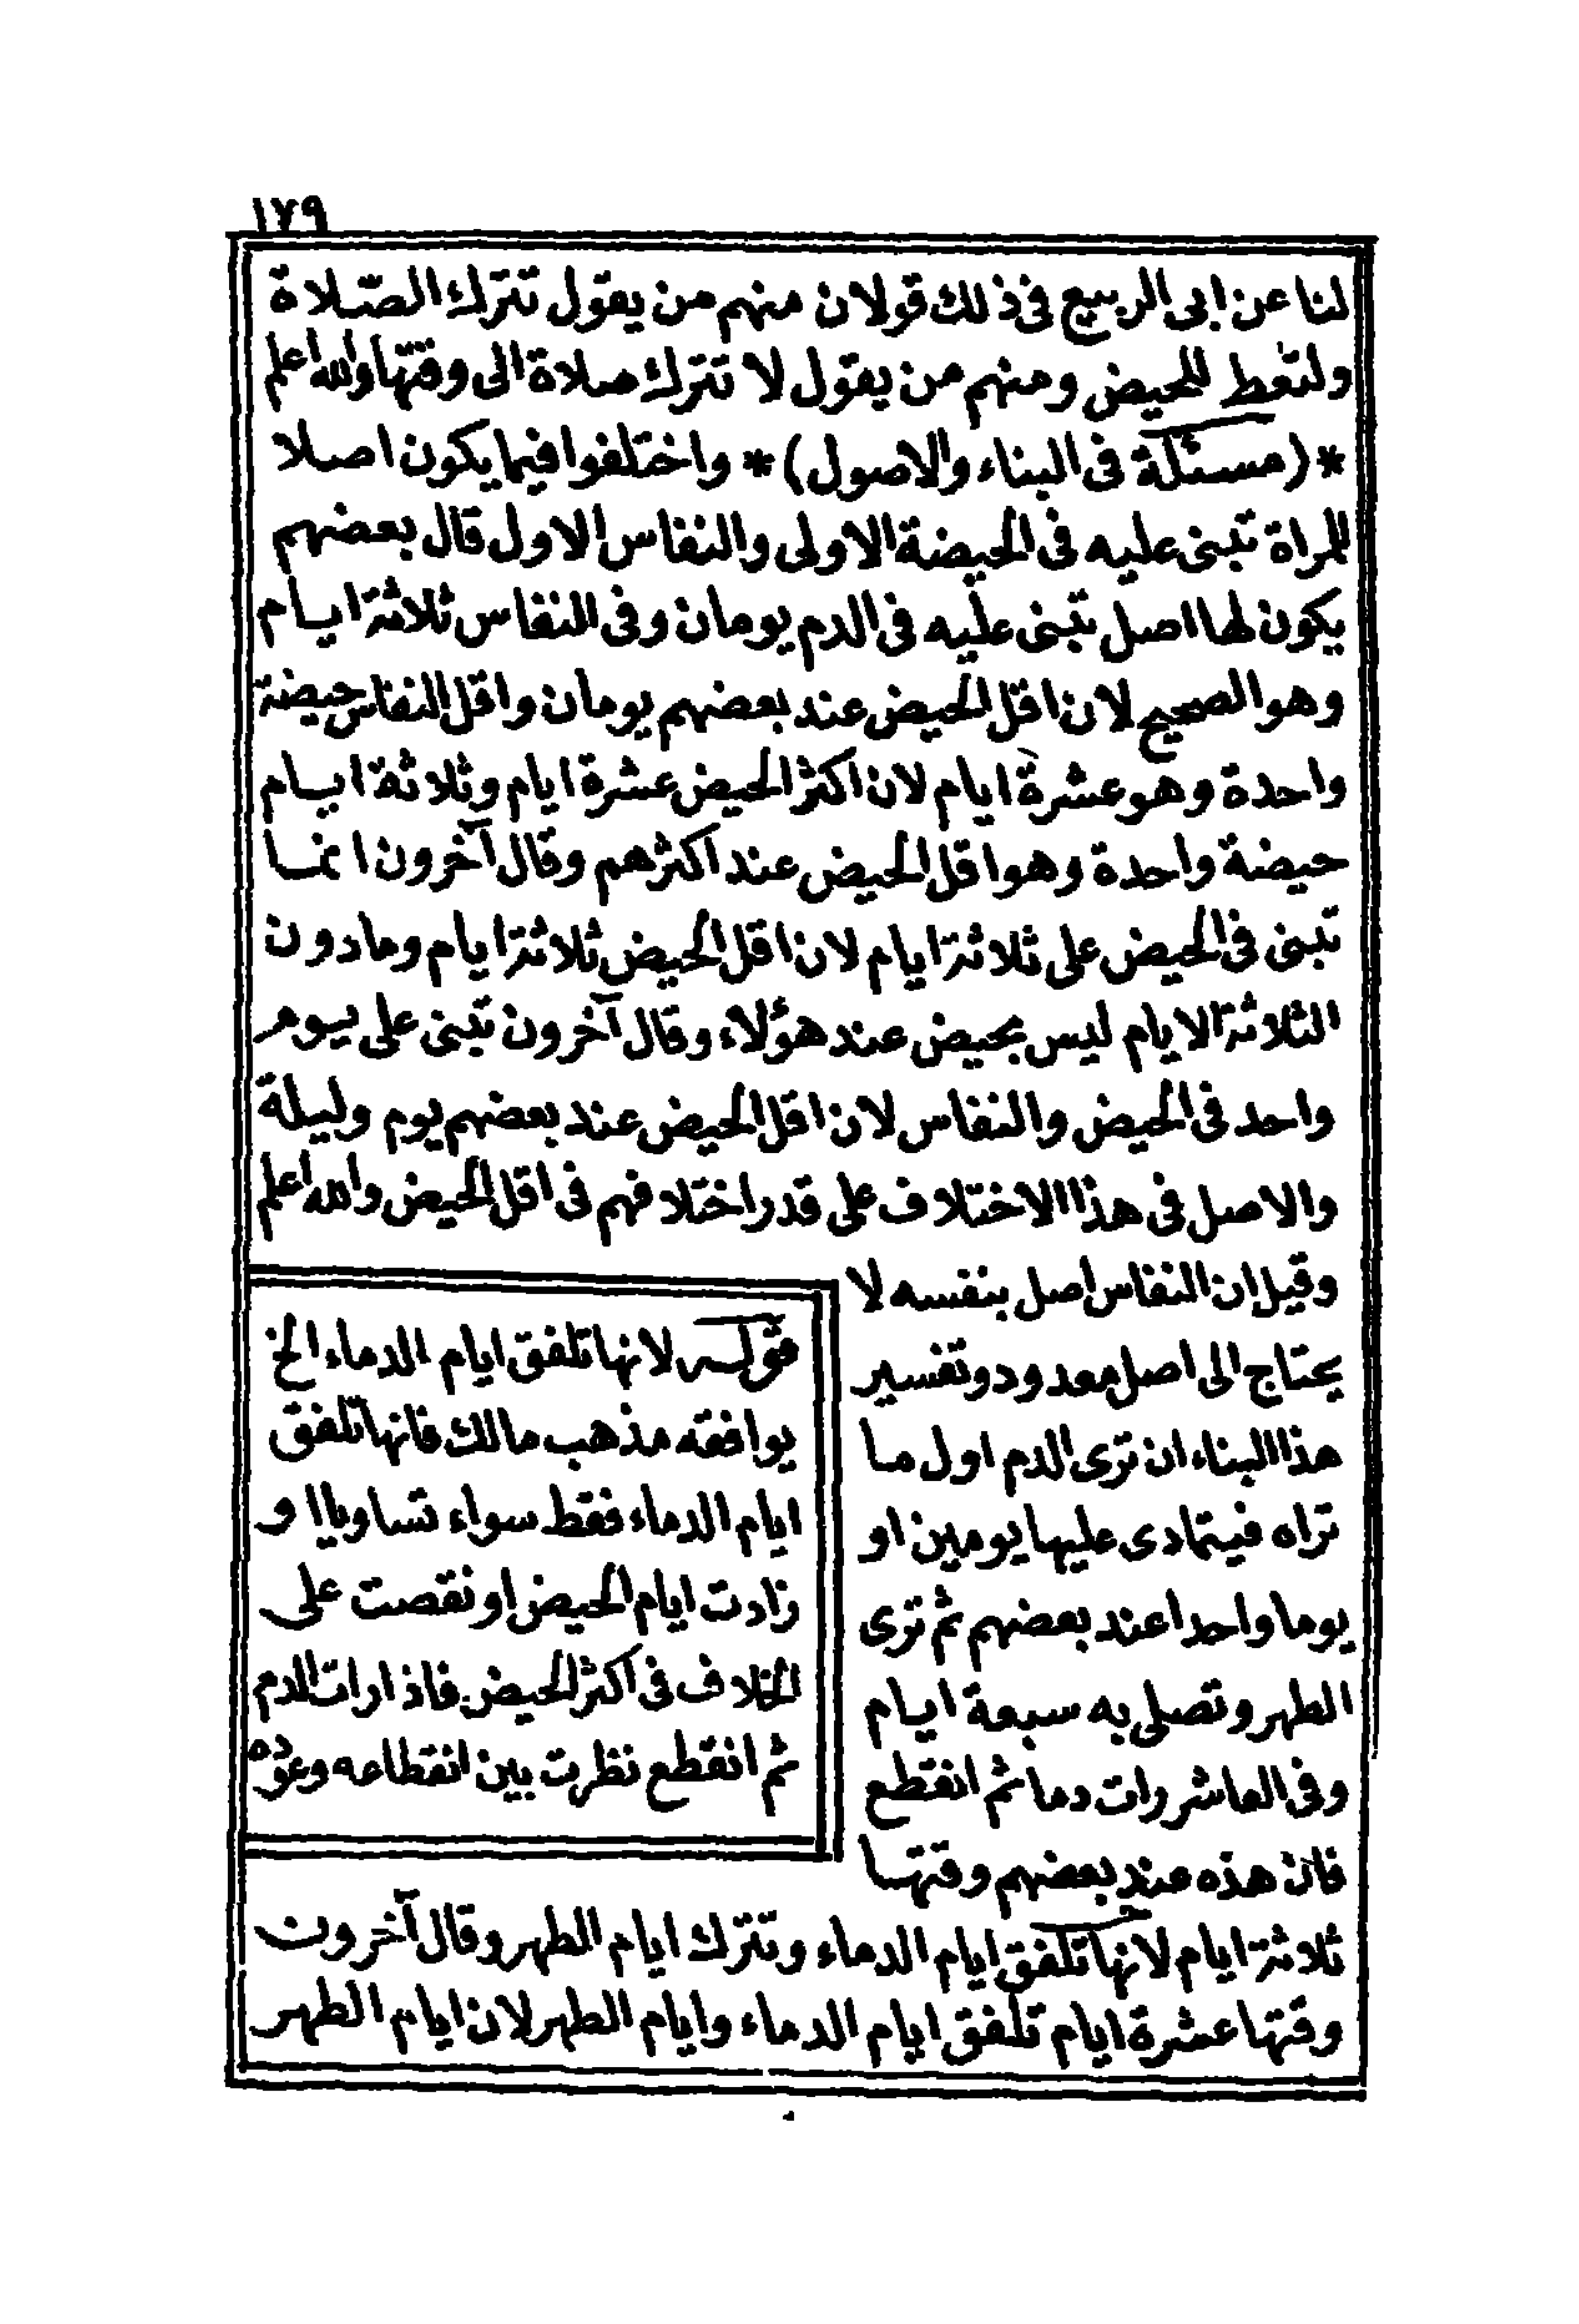 ١٧٩
لنا عن ابى الربيع فى ذلك قولان منهم من يقول تترك الصّلاة
ولتعط للحيض ومنهم من يقول لا تترك صلاة الى وقتها والله اعلم
*(مسئلة فى البناء والاصول)* واختلفوا فيما يكون اصلا
للمراة تبنى عليه فى الحيضة الاولى والنفاس الاول قال بعضهم
يكون لها اصل تبنى عليه فى الدم يومان وفى النفاس ثلاثة ايام
وهو الصحيح لان اقل الحيض عند بعضهم يومان واقل النفاس حيضة
واحدة وهو عشرة ايام لان اكثر الحيض عشرة ايام وثلاثة ايام
حيضة واحدة وهو اقل الحيض عند اكثرهم وقال آخرون انما
تبنى فى الحيض على ثلاثة ايام لان اقل الحيض ثلاثة ايام وما دون
الثلاثة الايام ليس بحيض عند هؤلاء وقال آخرون تبنى على يوم
واحد فى الحيض والنفاس لان اقل الحيض عند بعضهم يوم وليلة
والاصل فى هذا الاختلاف على قدر اختلافهم فى اقل الحيض والله اعلم
وقيل ان النفاس اصل بنفسه لا
يحتاج الى اصل معدود وتفسير
هذا البناء ان ترى الدم اول ما
تراه فيتمادى عليها يومين او
يوما واحدا عند بعضهم ثم ترى
الطهر وتصلى به سبعة ايام
وفى العاشر رات دما ثم انقطع
فان هذه عند بعضهم وقتها
ثلاثة ايام لانها تلفق ايام الدماء وتترك ايام الطهر وقال آخرون
وقتها عشرة ايام تلفق ايام الدماء وايام الطهر لان ايام الطهر
قوله لانها تلفق ايام الدماء الخ
يوافقه مذهب مالك فانها تلفق
ايام الدماء فقط سواء تساويا او
زادت ايام الحيض او نقصت على
الخلاف فى اكثر الحيض فاذا رات الدم
ثم انقطع نظرت بين انقطاعه وعوده